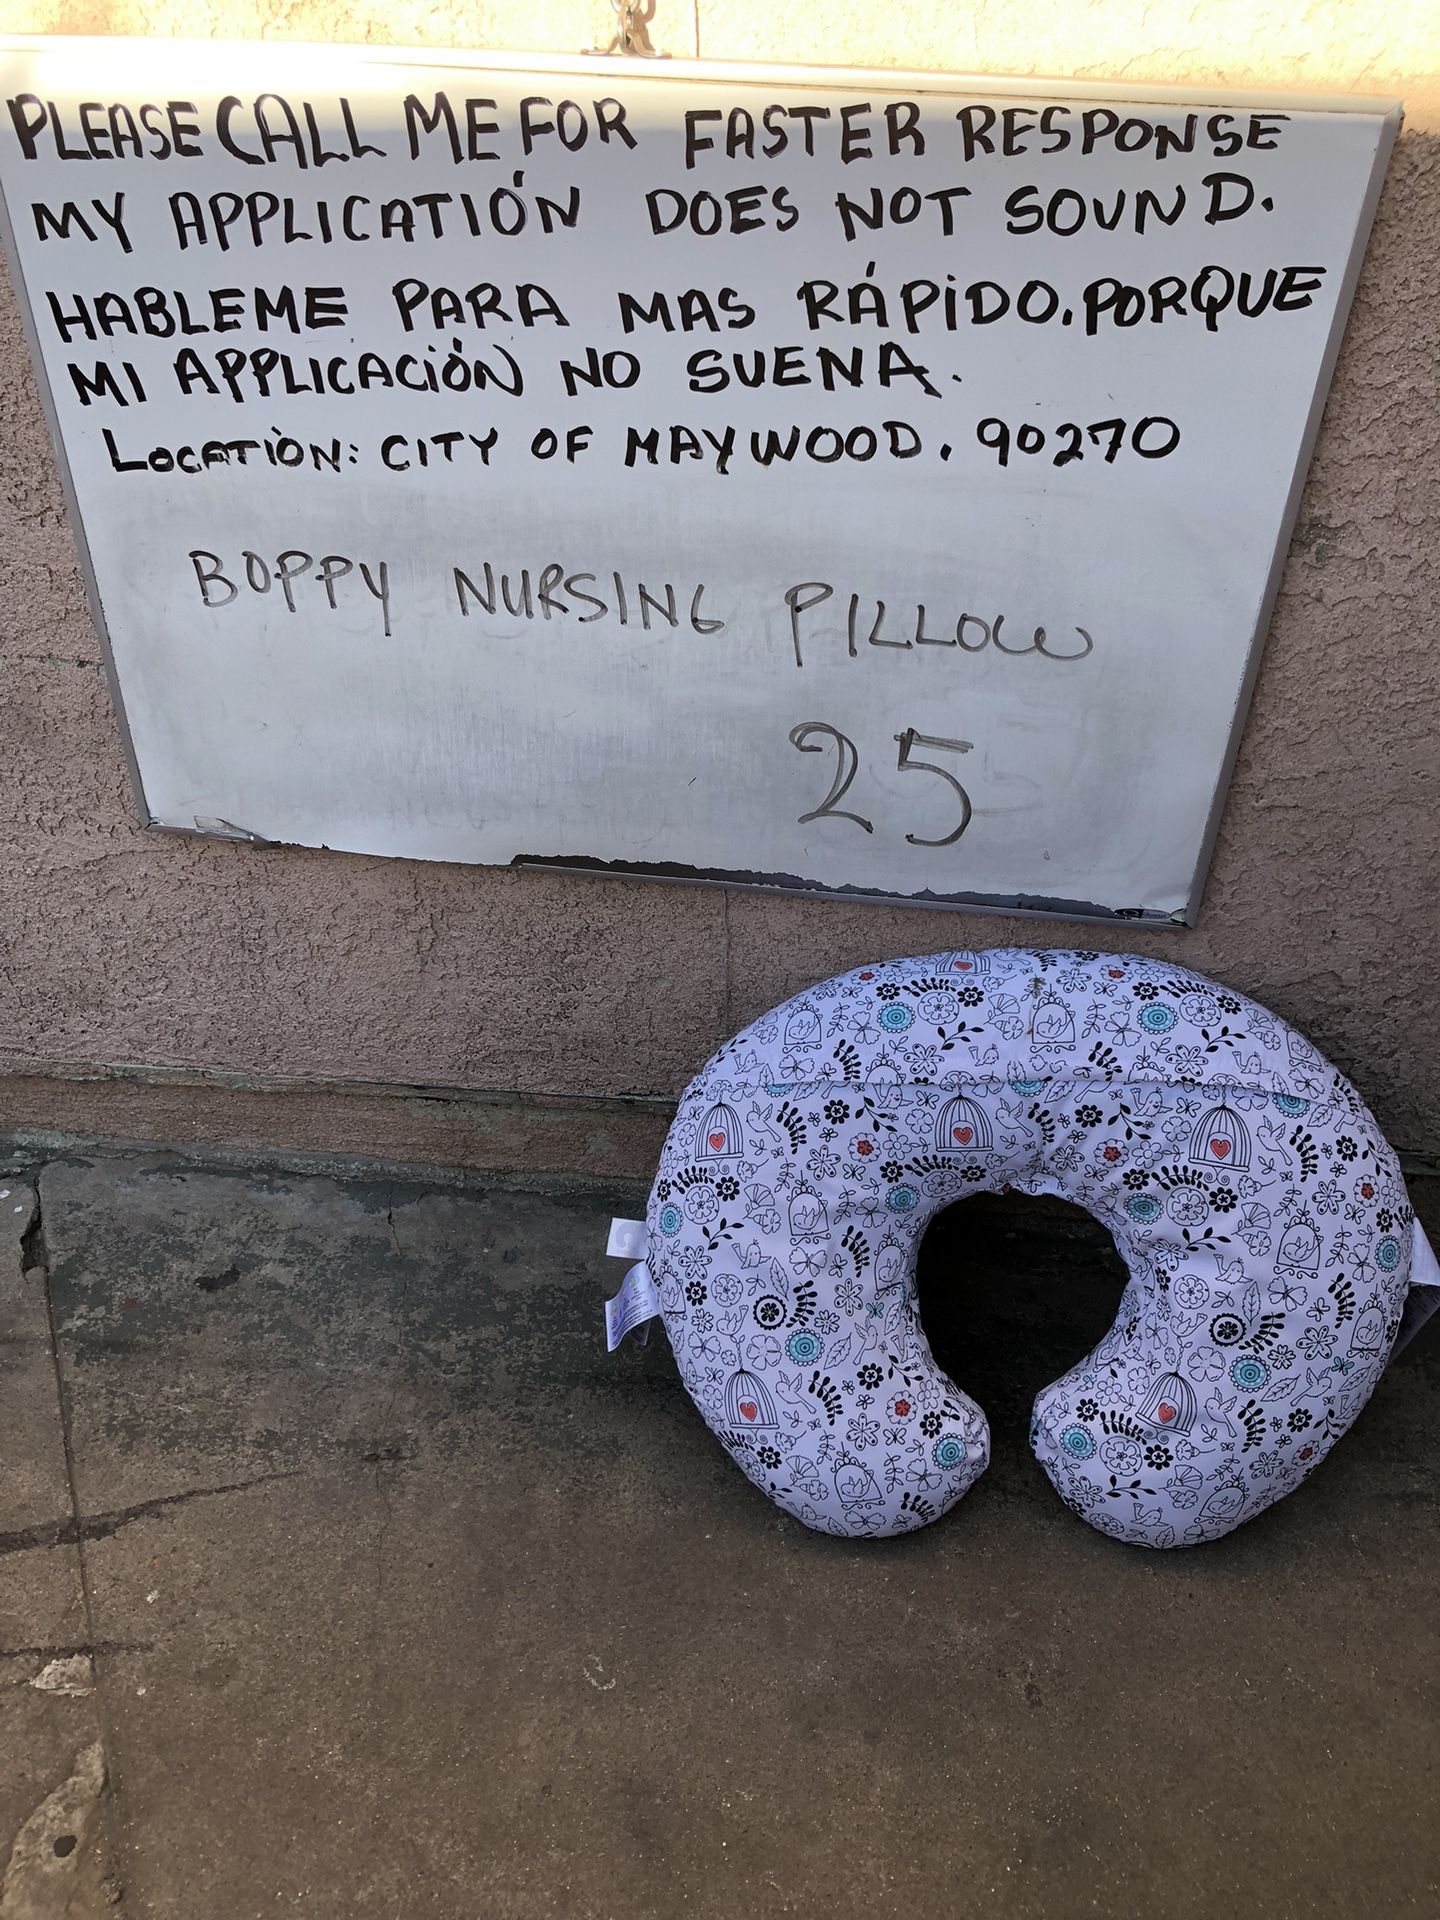 PLEASE CALL ME FOR FASTER RESPONSE
MY APPLICATIÓN DOES NOT SOUND.
HABLEME PARA MAS RÁPIDO. PORQUE
MI APPLICACIÓN NO SUENA.
LOCATIÒN: CITY OF MAYWOOD. 90270
BOPPY NURSING PILLOW
25